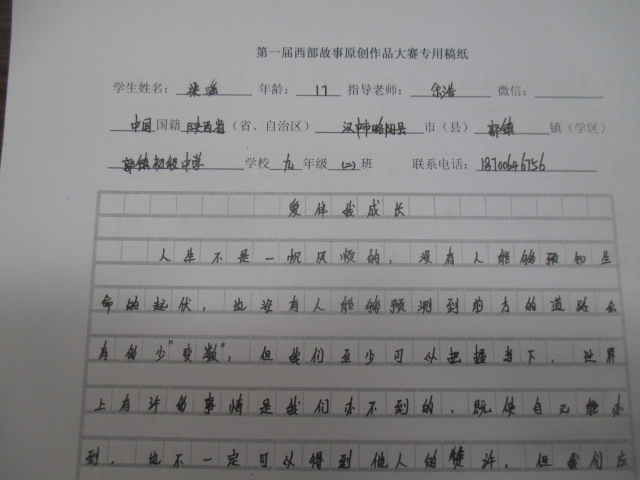 第一届西部故事原创作品大赛专用稿纸
学生姓名：梁瑶 年龄：17 指导老师：余浩 微信：
中国国籍 陕西省（省、自治区） 汉中市略阳县 市（县） 郭镇 镇（学区）
郭镇初级中学 学校 九 年级 (二) 班 联系电话：
爱伴我成长
人生不是一帆风顺的，没有人能够预知生
命的起伏，也没有人能够预测到前方的道路会
有多少"变数"，但我们至少可以把握当下，世界
上有许多事情是我们办不到的，既使自己能办
到，也不一定可以得到他人的赞许，但我们应